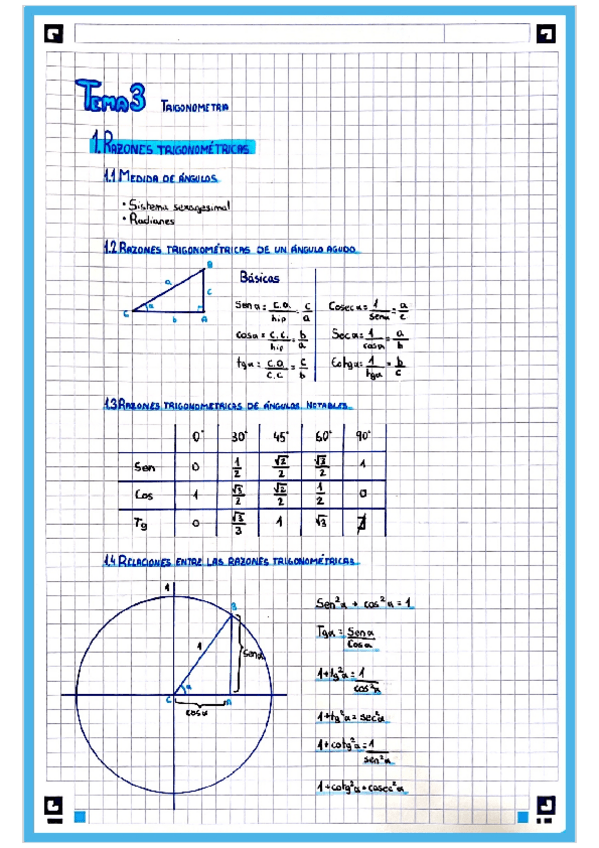 TEMA 3 TRIGONOMETRIA
1. RAZONES TRIGONOMÉTRICAS
1.1 MEDIDA DE ÁNGULOS
• Sistema sexagesimal
• Radianes
1.2 RAZONES TRIGONOMÉTRICAS DE UN ÁNGULO AGUDO
B
a
c
α
C
b
A
Básicas
Sen α = c.o./hip = c/a
Cosec α = 1/sen α = a/c
cos α = c.c./hip = b/a
Sec α = 1/cos α = a/b
tg α = c.o./c.c. = c/b
Cotg α = 1/tg α = b/c
1.3 RAZONES TRIGONOMETRICAS DE ÁNGULOS NOTABLES
0° 30° 45° 60° 90°
Sen 0 1/2 √2/2 √3/2 1
Cos 1 √3/2 √2/2 1/2 0
Tg 0 √3/3 1 √3 ∄
1.4 RELACIONES ENTRE LAS RAZONES TRIGONOMÉTRICAS
1
B
1
Sen α
α
C
A
cos α
Sen²α + cos²α = 1
Tg α = Sen α/Cos α
1+tg²α = 1/cos²α
1+tg²α = sec²α
1+cotg²α = 1/sen²α
1+cotg²α = cosec²α